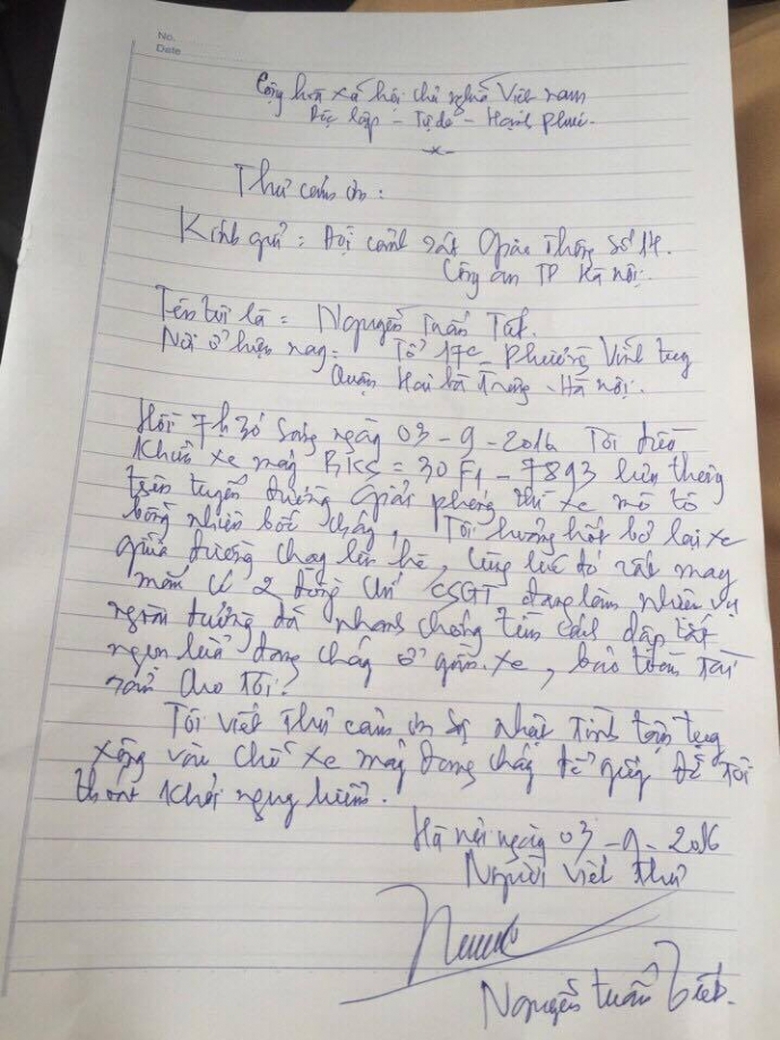 No.
Date
Cộng hòa xã hội chủ nghĩa Việt nam
Độc lập - Tự do - Hạnh phúc -
-x-
Thư cảm ơn :
Kính gửi : Đội cảnh sát Giao thông Số 14.
Công an TP Hà nội.
Tên tôi là = Nguyễn Tuấn
Nơi ở hiện nay = Tổ 17c - Phường Vĩnh tuy
Quận Hai bà Trưng - Hà nội.
Hồi 7h 30 sáng ngày 03-9-2016 Tôi điều
khiển xe máy BKS = 30F1-7893 lưu thông
trên tuyến đường giải phóng thì xe mô tô
bỗng nhiên bốc cháy, Tôi hoảng hốt bỏ lại xe
giữa đường chạy lên hè, cùng lúc đó rất may
mắn có 2 đồng chí CSGT đang làm nhiệm vụ
ngoài đường đã nhanh chóng tìm cách dập tắt
ngọn lửa đang cháy ở gầm xe, bảo toàn tài
sản cho tôi.
Tôi viết thư cảm ơn sự nhiệt tình tận tụy
xông vào chỗ xe máy đang cháy để giúp đỡ tôi
thoát khỏi nguy hiểm.
Hà nội ngày 03-9-2016
Người viết thư
Nguyễn tuấn